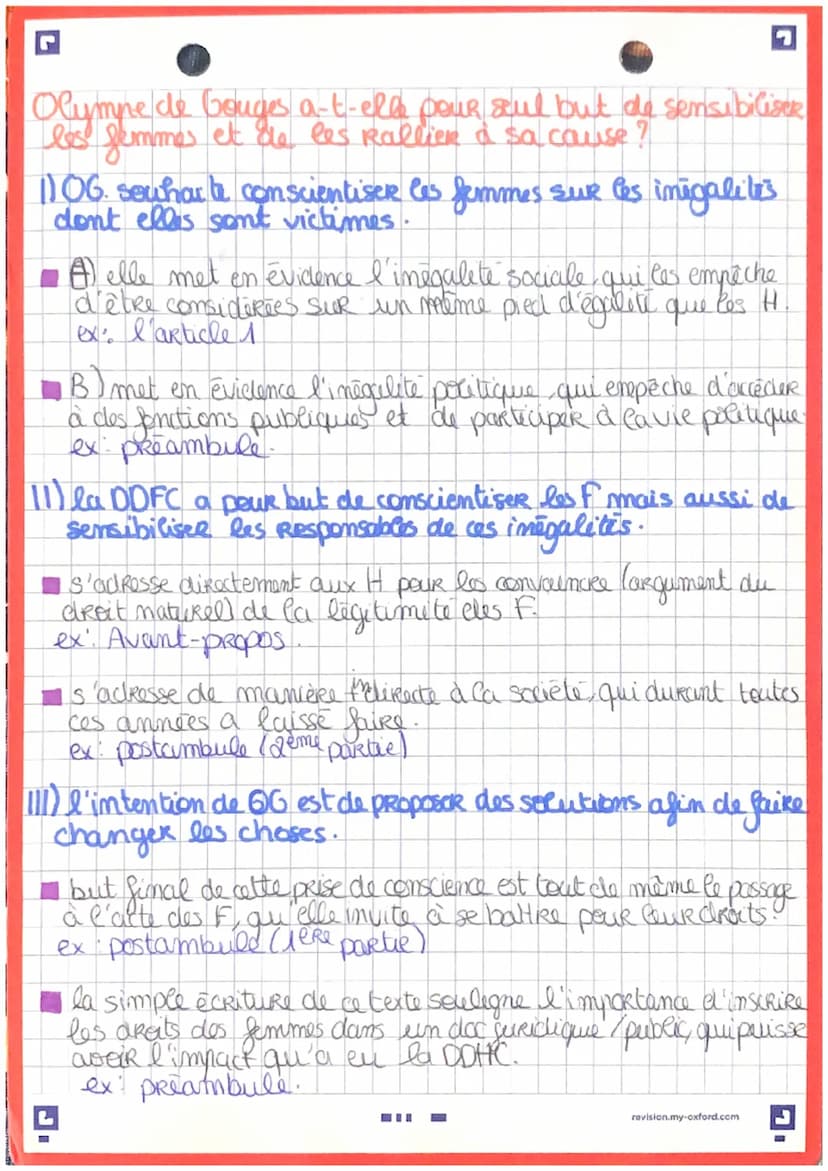 Olympe de Gouges a-t-elle pour seul but de sensibiliser
les femmes et de les Rallier à sa cause ?
I) OG. souhaite conscientiser les femmes sur les inégalités
dont elles sont victimes.
A) elle met en évidence l'inégalité sociale, qui les empêche
d'être considérées sur un même pied d'égalité que les H.
ex: l'article 1
B) met en évidence l'inégalité politique, qui empêche d'accéder
à des fonctions publiques et de participer à la vie politique.
ex: préambule.
II) la DDFC a pour but de conscientiser les F mais aussi de
sensibiliser les Responsables de ces inégalités.
s'adresse directement aux H pour les convaincre (argument du
droit naturel) de la légitimité des F.
ex: Avant-propos.
s'adresse de manière directe à la société, qui durant toutes
ces années a laissé faire.
ex: postambule (2ème partie)
III) l'intention de OG est de proposer des solutions afin de faire
changer les choses.
but final de cette prise de conscience est tout de même le passage
à l'acte des F, qu'elle invite à se battre pour leur droits.
ex: postambule (1ère partie)
la simple écriture de ce texte souligne l'importance d'inscrire
les droits des femmes dans un doc juridique / public, qui puisse
avoir l'impact qu'a eu la DDHC.
ex: préambule.
revision.my-oxford.com